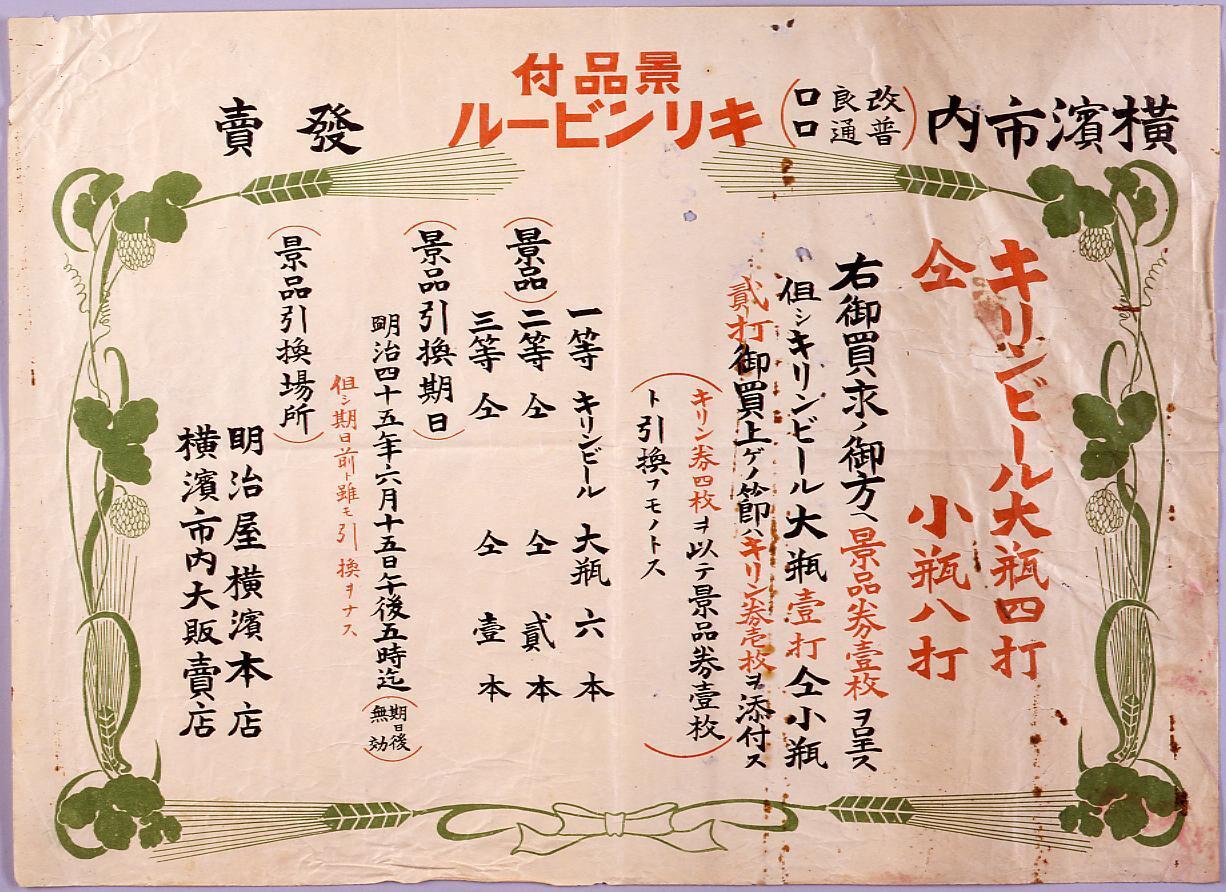 横濱市内
改良
普通
口口
景品付
キリンビール
發賣
キリンビール大瓶四打
仝 小瓶八打
右御買求ノ御方ヘ景品券壹枚ヲ呈ス
但シキリンビール大瓶壹打仝小瓶
貳打御買上ゲノ節ハキリン券壱枚ヲ添付ス
キリン券四枚ヲ以テ景品券壹枚
ト引換フモノトス
(景品)
一等 キリンビール 大瓶 六本
二等 仝 仝 貳本
三等 仝 仝 壹本
(景品引換期日)
明治四十五年六月十五日午後五時迄(期日後無効)
但シ期日前ト雖モ引換ヲナス
(景品引換場所)
明治屋横濱本店
横濱市内大販賣店